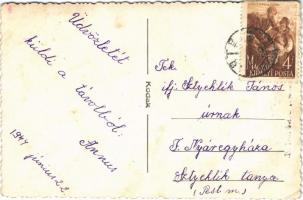 Üdvözletét
küldi a
távolból:
Annus
1944
június 22.
Kodak
MAGYAR 4
KIR. POSTA
Tek
ifj. Sztychlik János
úrnak
F. Nyáregyháza
Sztychlik tanya
(Pest m.)